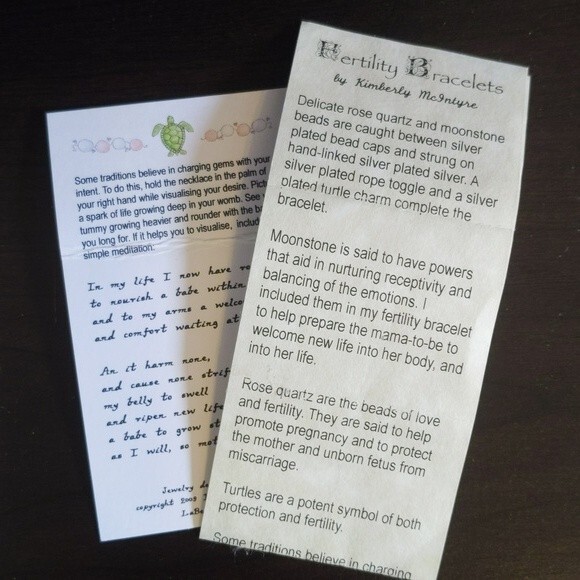 Some traditions believe in charging gems with your
intent. To do this, hold the necklace in the palm of
your right hand while visualising your desire.
a spark of life growing deep in your womb. See
tummy growing heavier and rounder with the
you long for. If it helps you to visualise,
simple meditation.
In my life I now have
to nourish a babe within
and to my arms a
and comfort waiting at
An it harm none,
and cause none
my belly to swell
and ripen new life
a babe to grow
as I will, so
Jewelry
copyright
Fertility Bracelets
by Kimberly McIntyre
Delicate rose quartz and moonstone
beads are caught between silver
plated bead caps and strung on
hand-linked silver plated silver. A
silver plated rope toggle and a silver
plated turtle charm complete the
bracelet.
Moonstone is said to have powers
that aid in nurturing receptivity and
balancing of the emotions. I
included them in my fertility bracelet
to help prepare the mama-to-be to
welcome new life into her body, and
into her life.
Rose quartz are the beads of love
and fertility. They are said to help
promote pregnancy and to protect
the mother and unborn fetus from
miscarriage.
Turtles are a potent symbol of both
protection and fertility.
Some traditions believe in charging